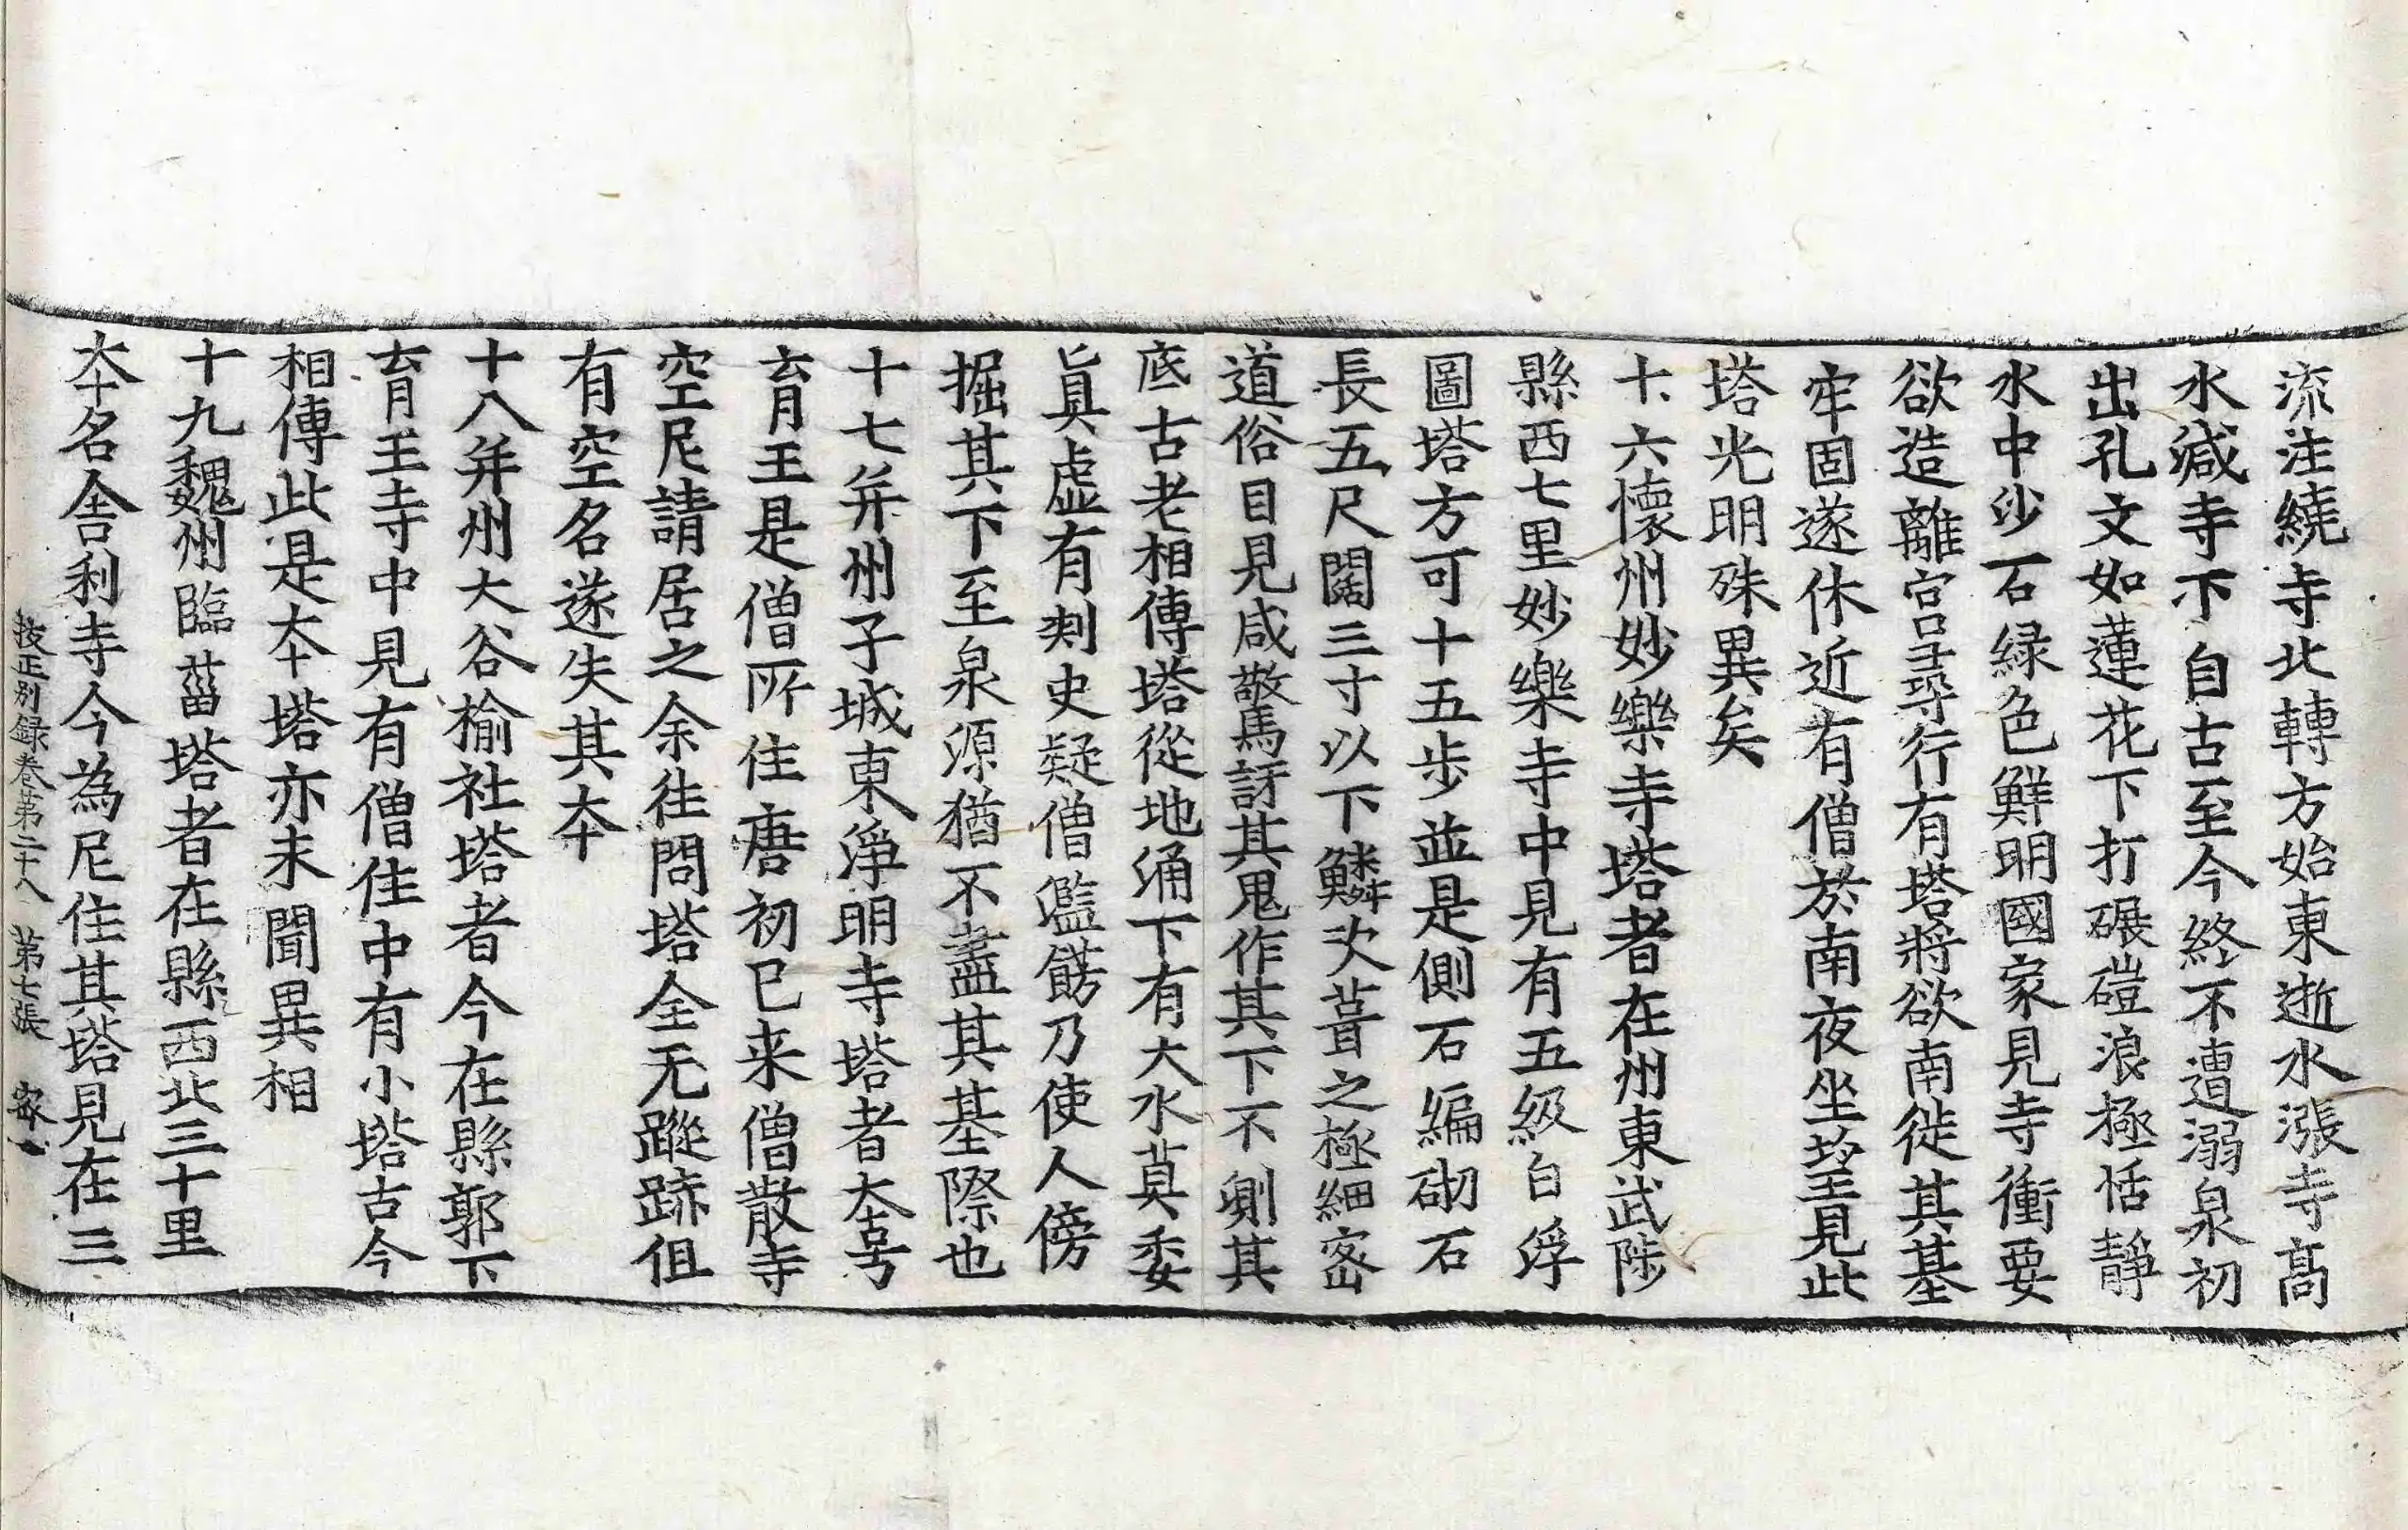 流注繞寺北轉方始東逝水漲寺高
水減寺下自古至今終不遭溺泉初
出孔文如蓮花下打碾磑浪極恬靜
水中沙石緑色鮮明國家見寺衝要
欲造離宫尋行有塔將欲南徙其基
牢固遂休近有僧於南夜坐望見此
塔光明殊異矣
十六懷州妙樂寺塔者在州東武陟
縣西七里妙樂寺中見有五級白浮
圖塔方可十五步並是側石編砌石
長五尺闊三寸以下鱗次葺之極細密
道俗目見咸驚訝其鬼作其下不測其
底古老相傳塔從地涌下有大水莫委
真虛有刾史疑僧濫餝乃使人傍
掘其下至泉源猶不盡其基際也
十七并州子城東淨明寺塔者本号
育王是僧所住唐初已来僧散寺
空尼請居之余往問塔全无蹤跡但
有空名遂失其夲
十八并州大谷榆社塔者今在縣郭下
育王寺中見有僧住中有小塔古今
相傳此是夲塔亦未聞異相
十九魏州臨菑塔者在縣西北三十里
夲名舍利寺今為尼住其塔見在三
挍正别録卷第二十八 第七張 家